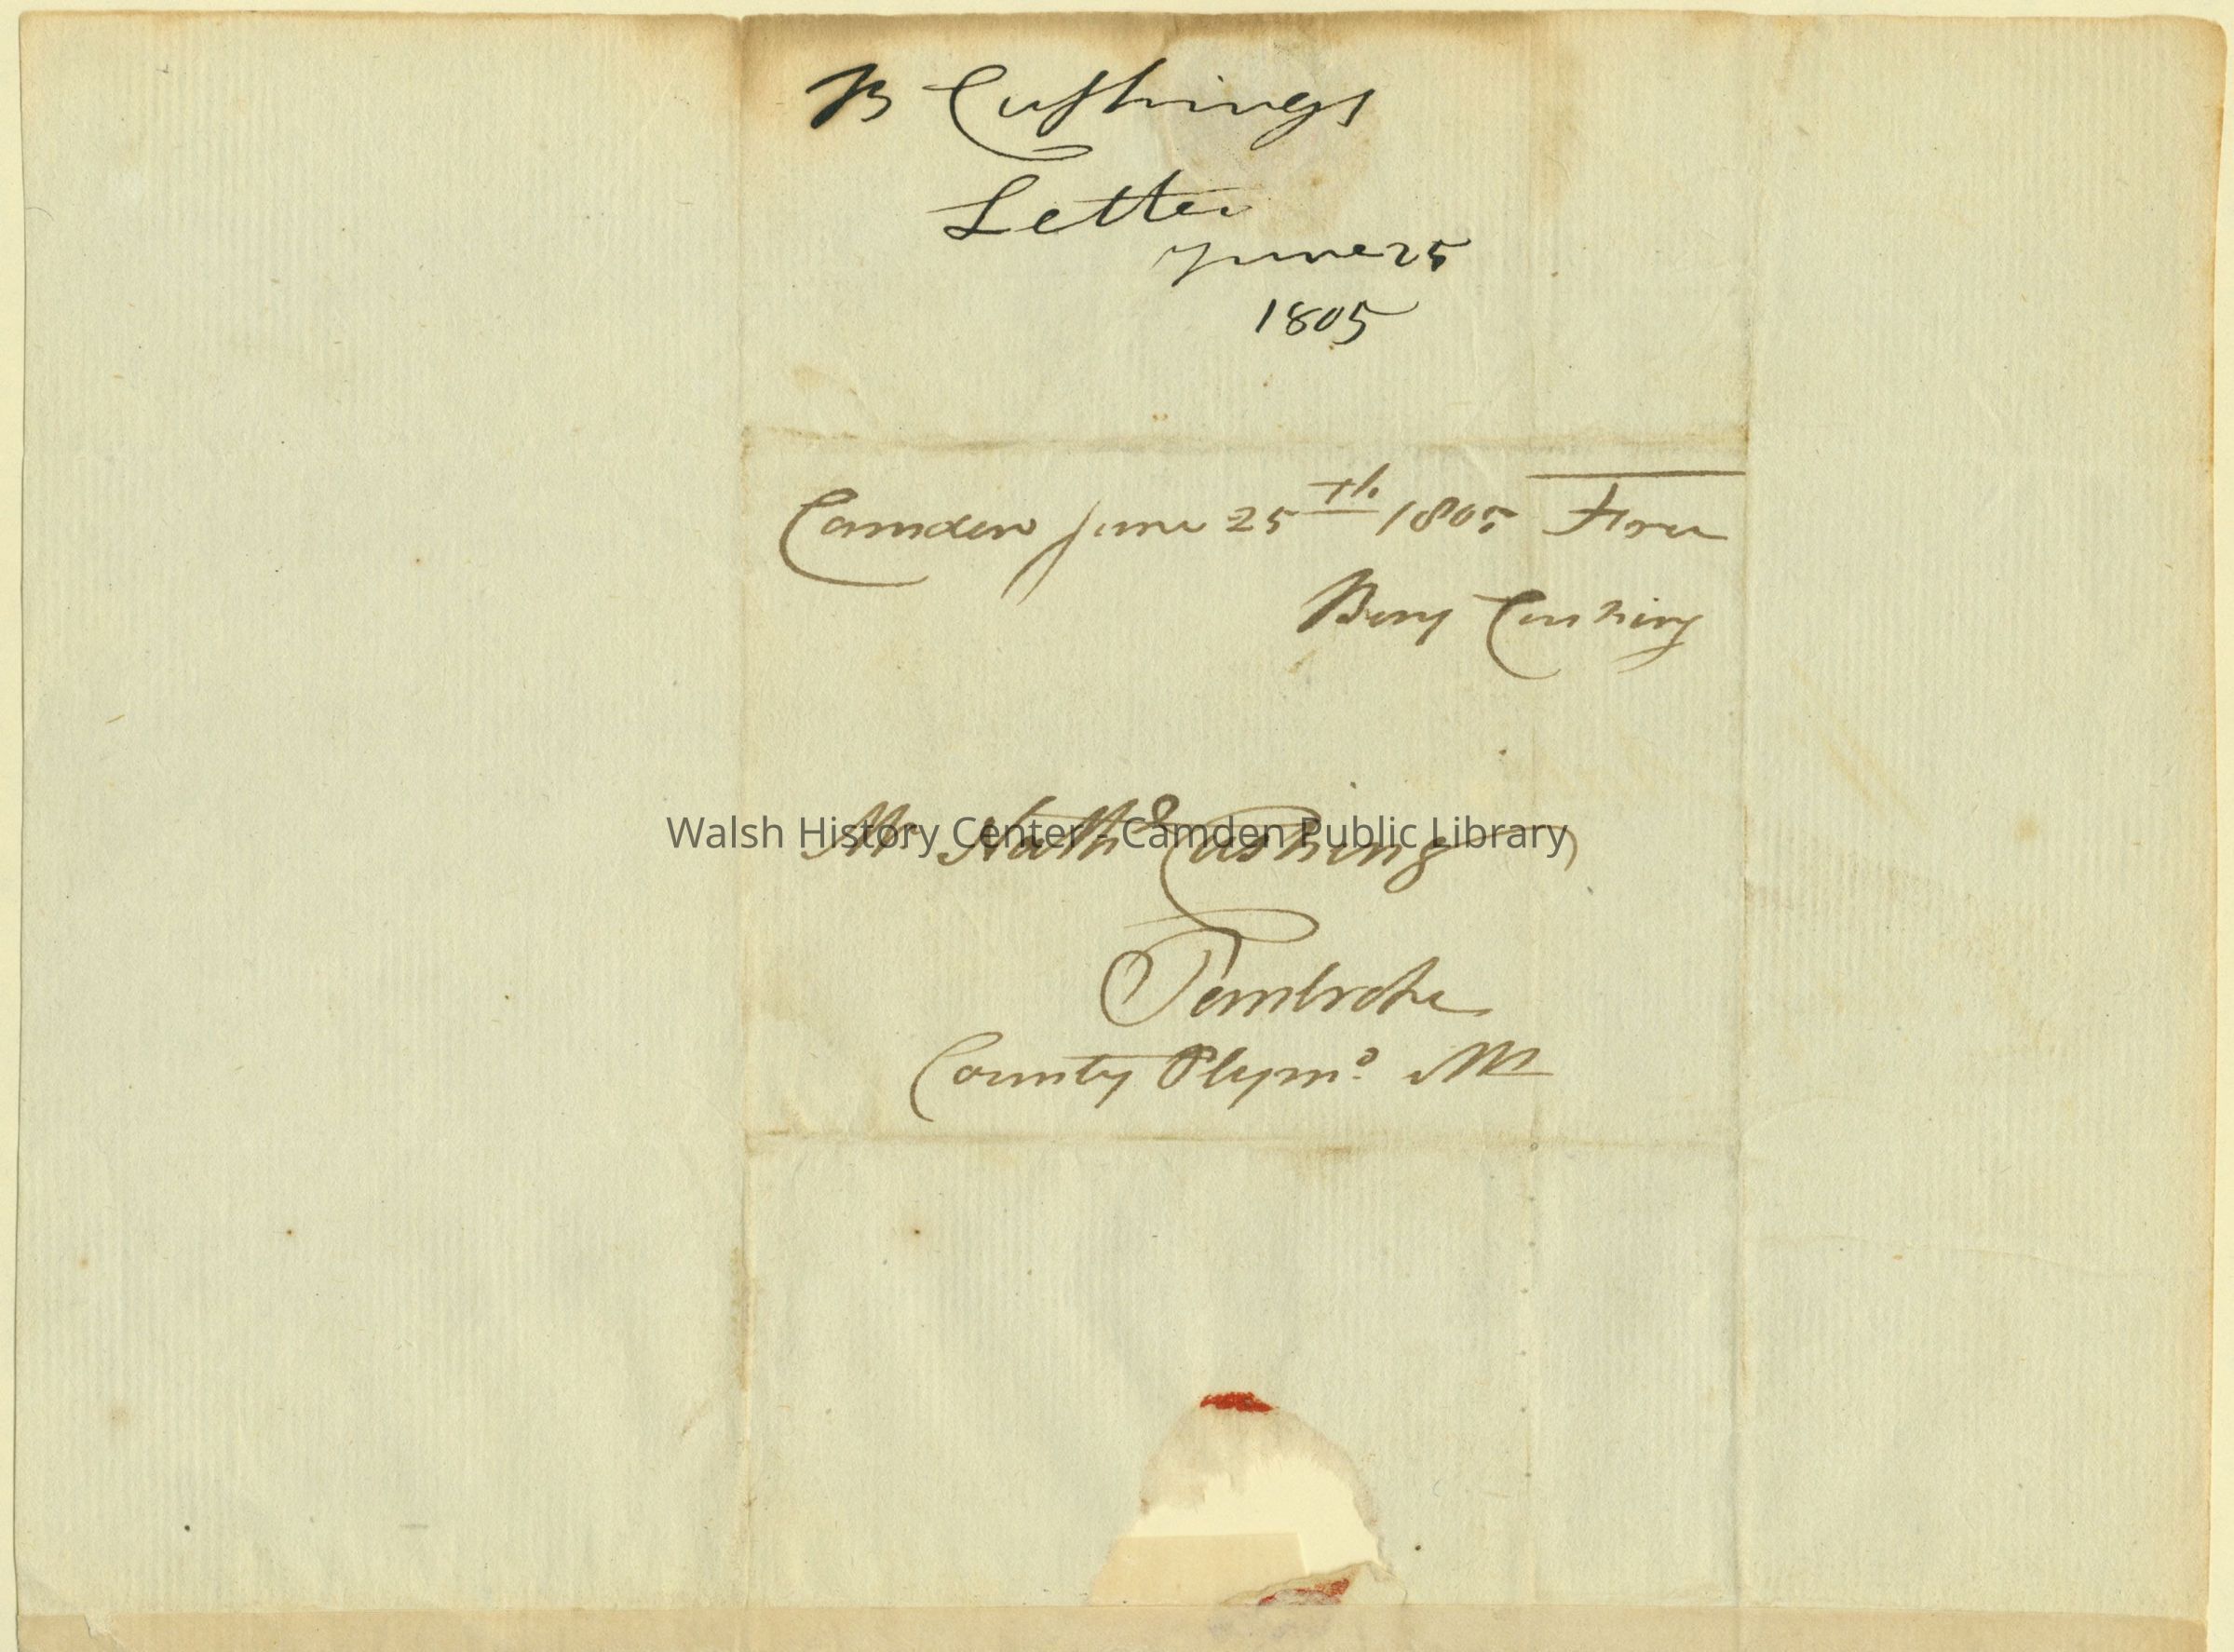 B Cushings
Letter
June 25
1805
Camden June 25th 1805 Free
Benj Cushing
Mr Nathl Cushing
Walsh History Center - Camden Public Library
Pembroke
County Plymo Ms